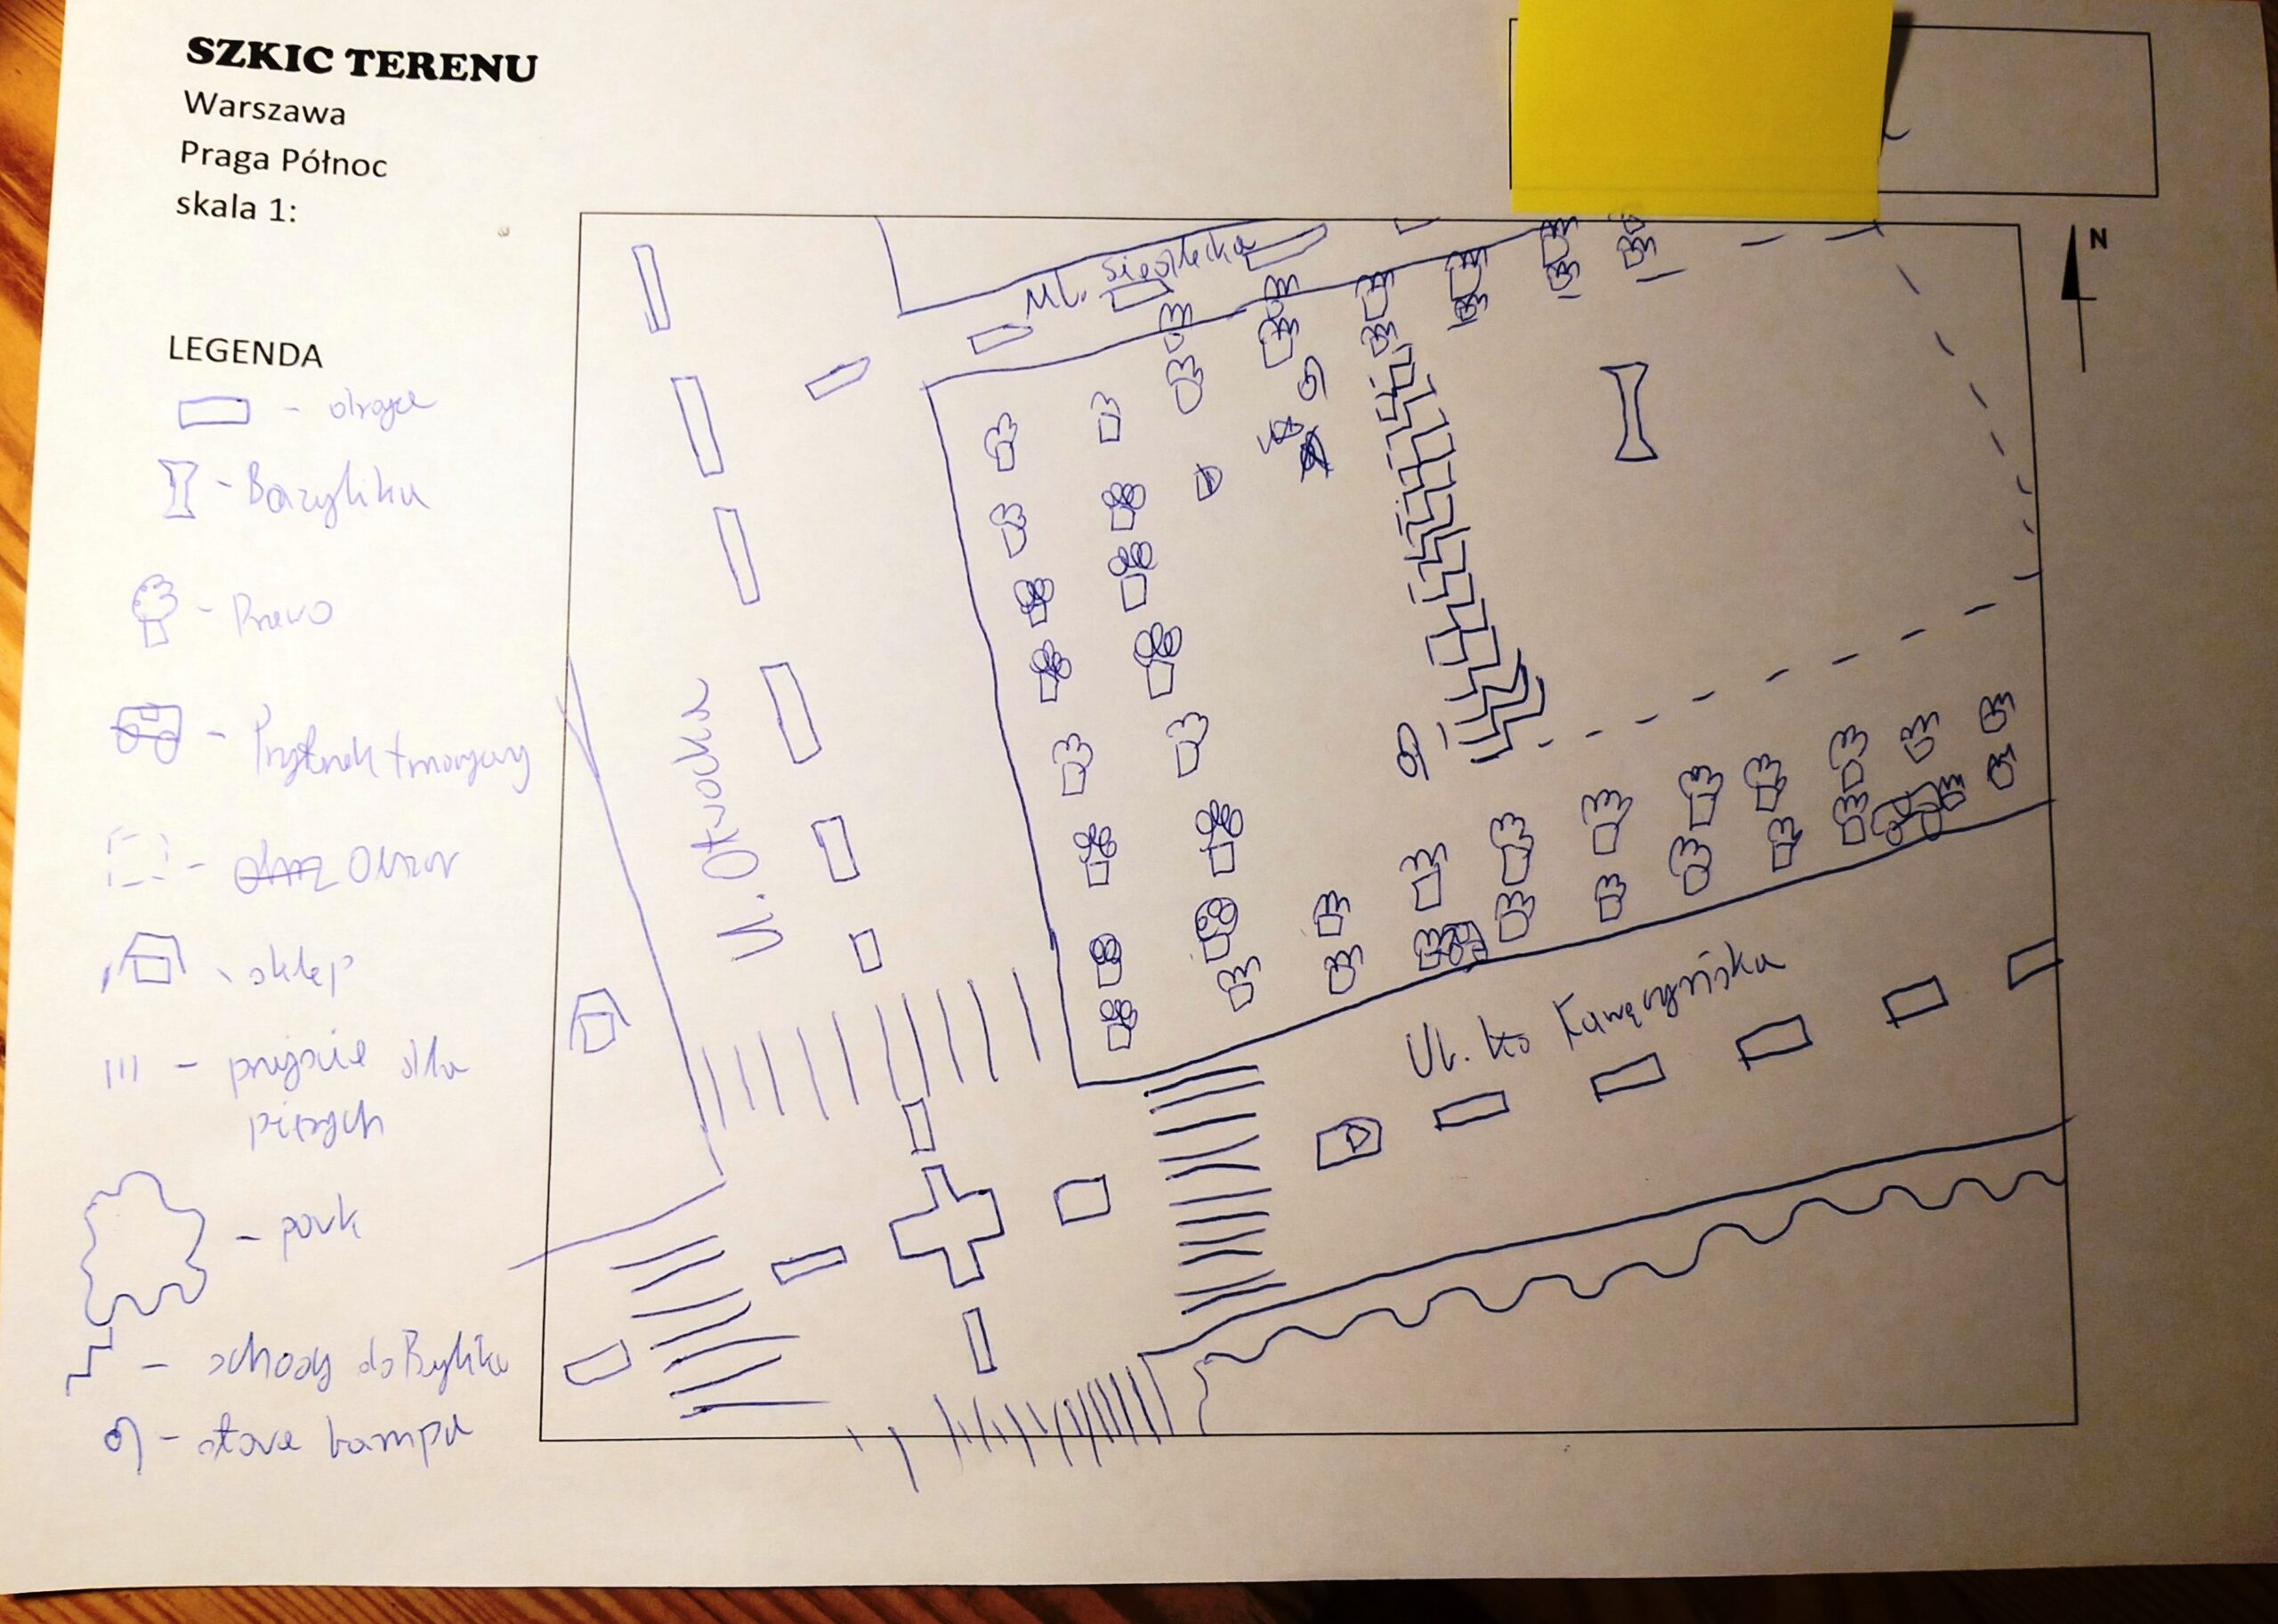 SZKIC TERENU
Warszawa
Praga Północ
skala 1:
N
LEGENDA
- Bazylika
- Drzewo
- Przystanek tramwajowy
- Obszar
- sklep
- przejście dla
pieszych
- park
- schody do
- stare lampy
ul. Siedlecka
Ul. Otwocka
Ul. Kawęczyńska